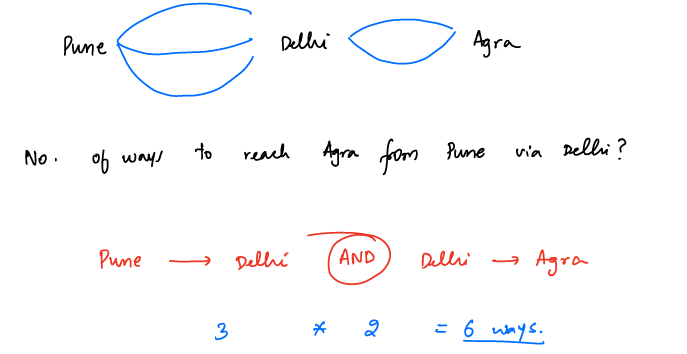 Pune Delhi Agra
No. of ways to reach Agra from Pune via Delhi?
Pune → Delhi AND Delhi → Agra
3 * 2 = 6 ways.